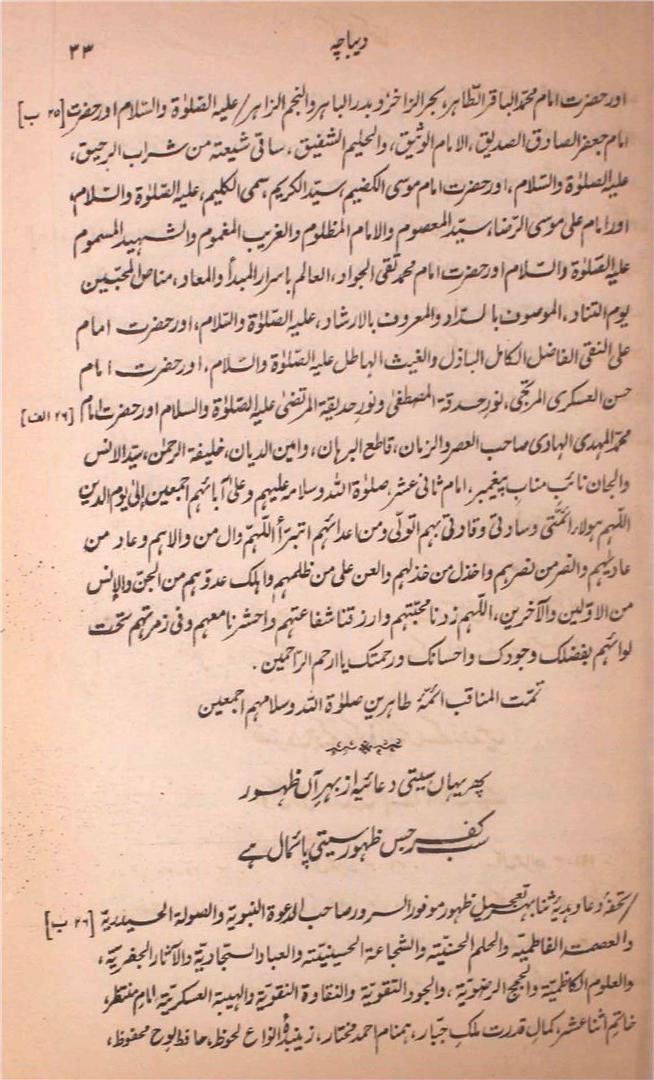 دیباچہ ۳۳
اور حضرت امام محمد الباقر الطّاہر، بحر الزاخر و بدر الباہر والنجم الزاہر/ علیہ الصّلوٰۃ والسّلام اور حضرتِ [۲۵ ب]
امام جعفر الصادق الصدیق، الامام الوثیق، والحلیم الشفیق، ساقی شیعتہ من شراب الرحیق،
علیہ الصّلوٰۃ والسّلام، اور حضرت امام موسیٰ الکضیم، سیّد الکریم، سمی الکلیم، علیہ الصّلوٰۃ والسّلام،
اور امام علی موسیٰ الرّضا، سیّد المعصوم والامام المظلوم والغریب المغموم والشہید المسموم
علیہ الصّلوٰۃ والسّلام اور حضرت امام محمد تقی الجواد، العالم باسرار المبدأ والمعاد، مناص المحبّین
یوم التناد، الموصوف بالسّداد والمعروف بالارشاد، علیہ الصّلوٰۃ والسّلام، اور حضرت امام
علی النقی الفاضل الکامل الباذل والغیث الہاطل علیہ الصّلوٰۃ والسّلام، اور حضرت امام
حسن العسکری المرجّیٰ، نورِ حدقۃ المصطفیٰ و نور حدیقۃ المرتضیٰ علیہ الصّلوٰۃ والسلام اور حضرت امام [۲۶ الف]
محمد المہدی الہادی صاحب العصر والزمان، قاطع البرہان، وامین الدیان، خلیفۃ الرحمٰن، سیّد الانس
والجان نائب مناب پیغمبر، امام ثانی عشر، صلوٰۃ اللہ وسلامہ علیہم وعلیٰ آبائہم اجمعین إلیٰ یوم الدین
اللّٰہم ہولاء ائمّتی وسادتی وقادتی بہم اتولّی ومن اعدائہم اتبرّأ اللّٰہم وال من والاہم وعاد من
عادیٰہم والنصر من نصرہم واخذل من خذلہم والعن علی من ظلمہم واہلک عدوّہم من الجنّ والانس
من الاوّلین والآخرین، اللّٰہم زدنا محبّتہم وارزقنا شفاعتہم واحشرنا معہم وفی زمرتہم تحت
لوائہم بفضلک وجودک واحسانک ورحمتک یا ارحم الرّاحمین۔
تمّت المناقب ائمّۂ طاہرین صلوٰۃ اللہ وسلامہم اجمعین
پھر یہاں سیتی دعائیہ از بہر آں ظہور
سب کفر جس ظہور سیتی پائمال ہے
/ تحفۂ دعا و ہدیۂ ثنا بہت تعجیل ظہور موفور السرور صاحب الدعوۃ النبویّۃ والصولۃ الحیدریّۃ [۲۶ ب]
والعصمتہ الفاطمیّہ والحلم الحسنیّتہ والشجاعۃ الحسینیّتہ والعباد السجادیّۃ والآثار الجعفریّہ،
والعلوم الکاظمیّۃ والحجج الرضویّۃ، والجود التقویّۃ والنقاوۃ النقویّۃ والہیبۃ العسکریّۃ امام منتظر،
خاتم اثنا عشر، کمال قدرت ملک جبّار، ہمنام احمد مختار، الواح لحوظ، حافظ لوح محفوظ،